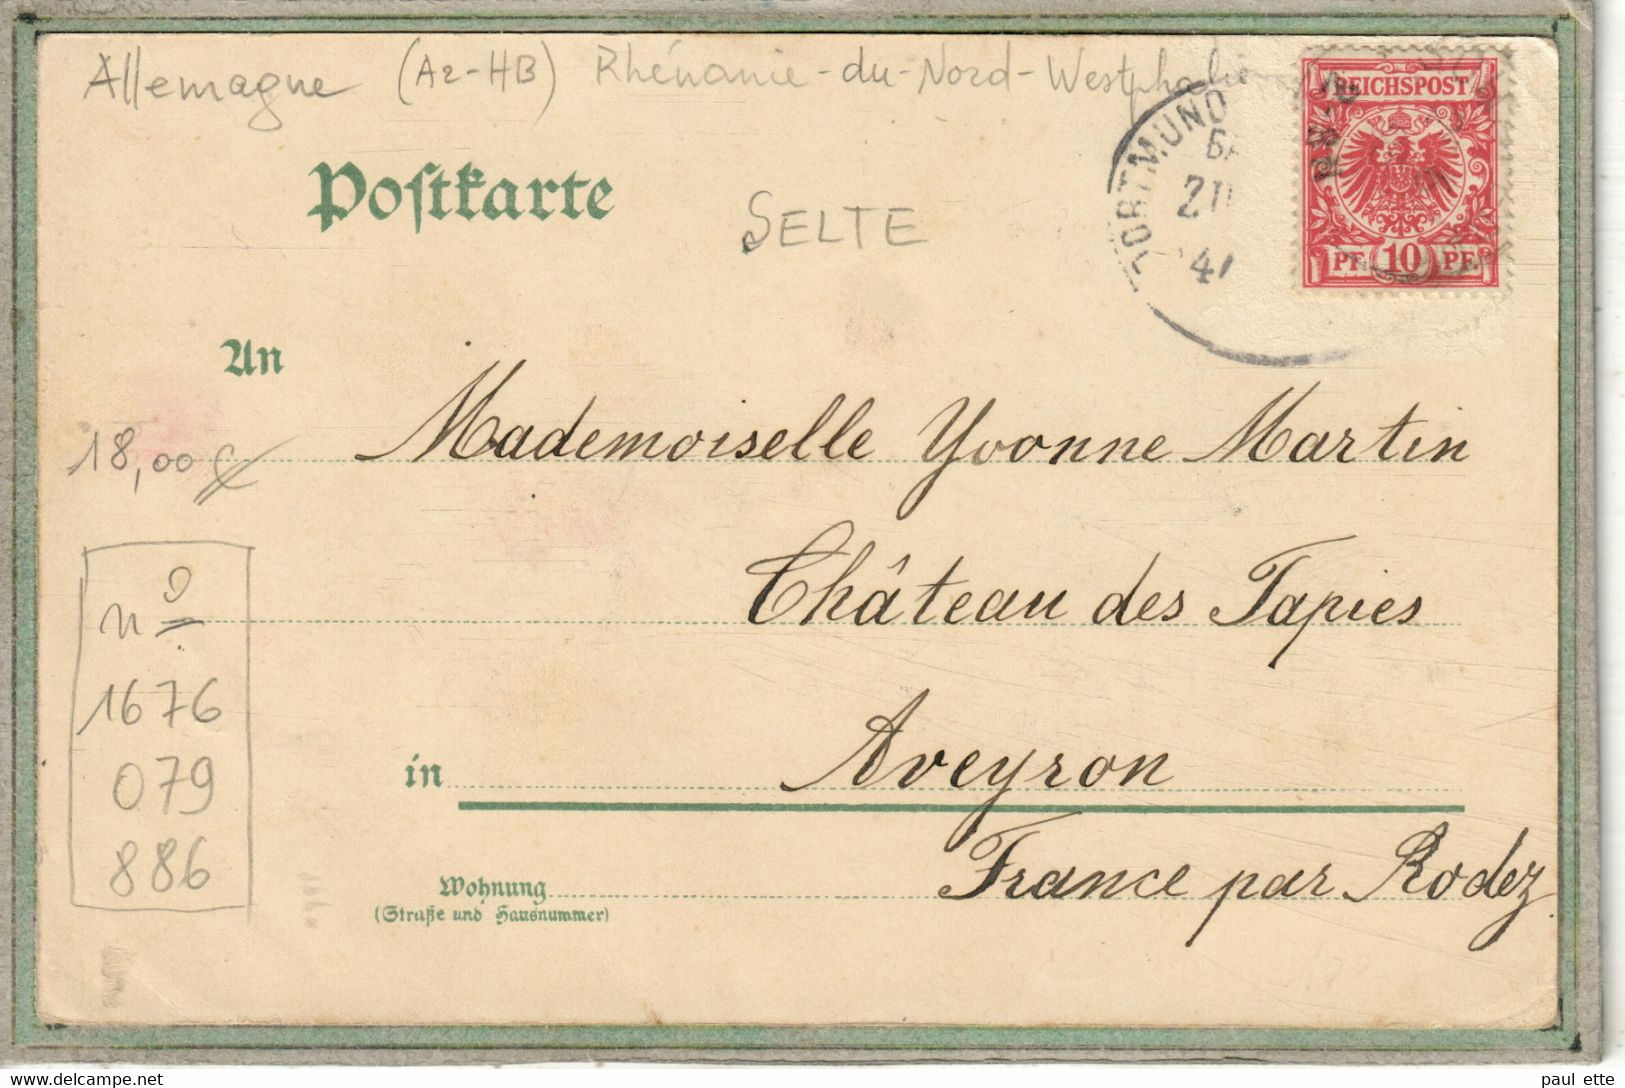 Allemagne (A2-HB) Rhénanie-du-Nord-Westphalie
REICHSPOST
PF 10 PF.
DORTMUND
Postkarte
SELTE
An
Mademoiselle Yvonne Martin
18,00 €
Château des Tapies
nº
1676
079
886
in Aveyron
France par Rodez
Wohnung
(Straße und Hausnummer)
paul ette